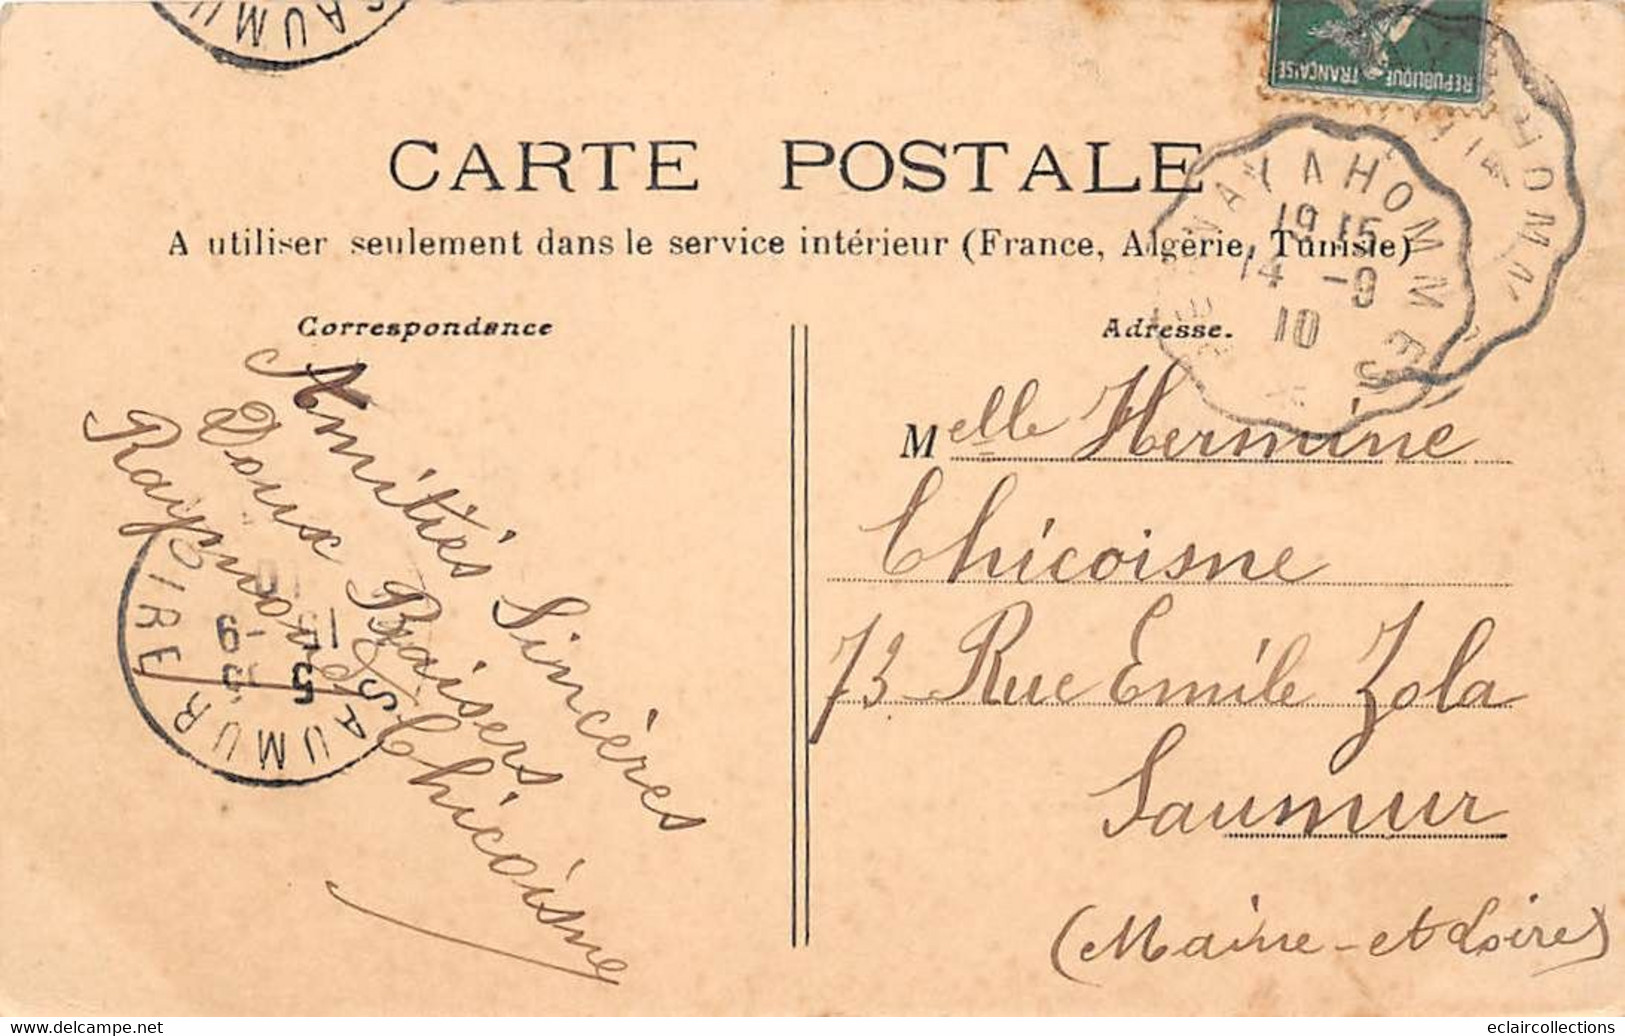 SAUMU
REPUBLIQUE FRANÇAISE
CARTE POSTALE
A utiliser seulement dans le service intérieur (France, Algérie, Tunisie)
HOMMES
19 15
14 -9
10
Correspondance
Amitiés Sincères
Doux Baisers
Raymond Chicoisne
SAUMUR
IRE
5
-9
Adresse.
Melle Hermine
Chicoisne
73 Rue Emile Zola
Saumur
(Maine-et Loire)
eclaircollections